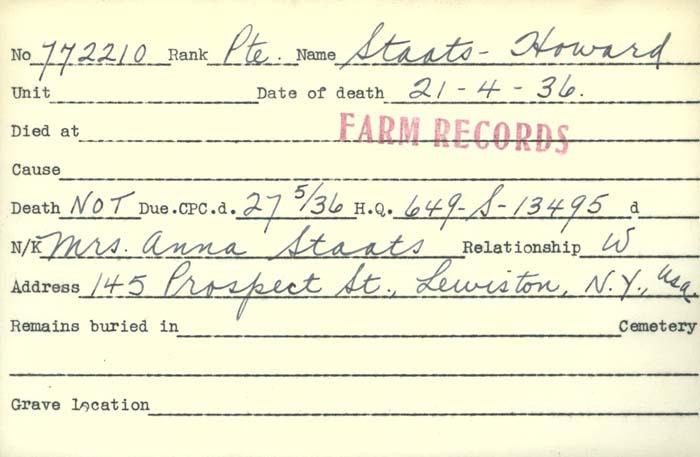 No 772210 Rank Pte. Name Staats - Howard
Unit Date of death 21 - 4 - 36.
Died at FARM RECORDS
Cause
Death NOT Due.CPC.d. 27 5/36 H.Q. 649-S-13495 d
N/K Mrs. Anna Staats Relationship W
Address 145 Prospect St., Lewiston, N.Y., USA.
Remains buried in Cemetery
Grave location